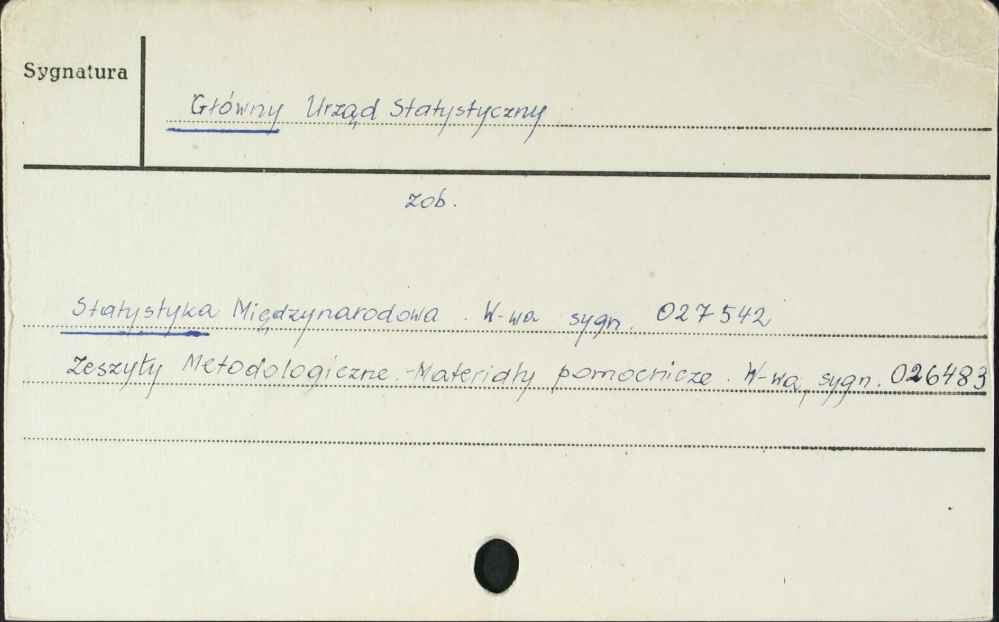 Sygnatura
Główny Urząd Statystyczny
zob.
Statystyka Międzynarodowa. W-wa sygn. 027542
Zeszyty Metodologiczne.-Materiały pomocnicze. W-wa, sygn. 026483